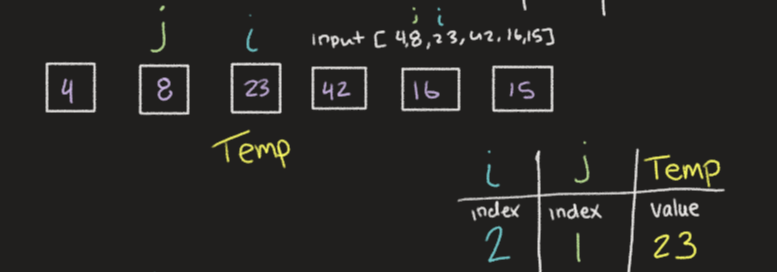 j i
j i
input [ 4,8,23,42,16,15]
4 8 23 42 16 15
Temp
i j Temp
index index value
2 1 23